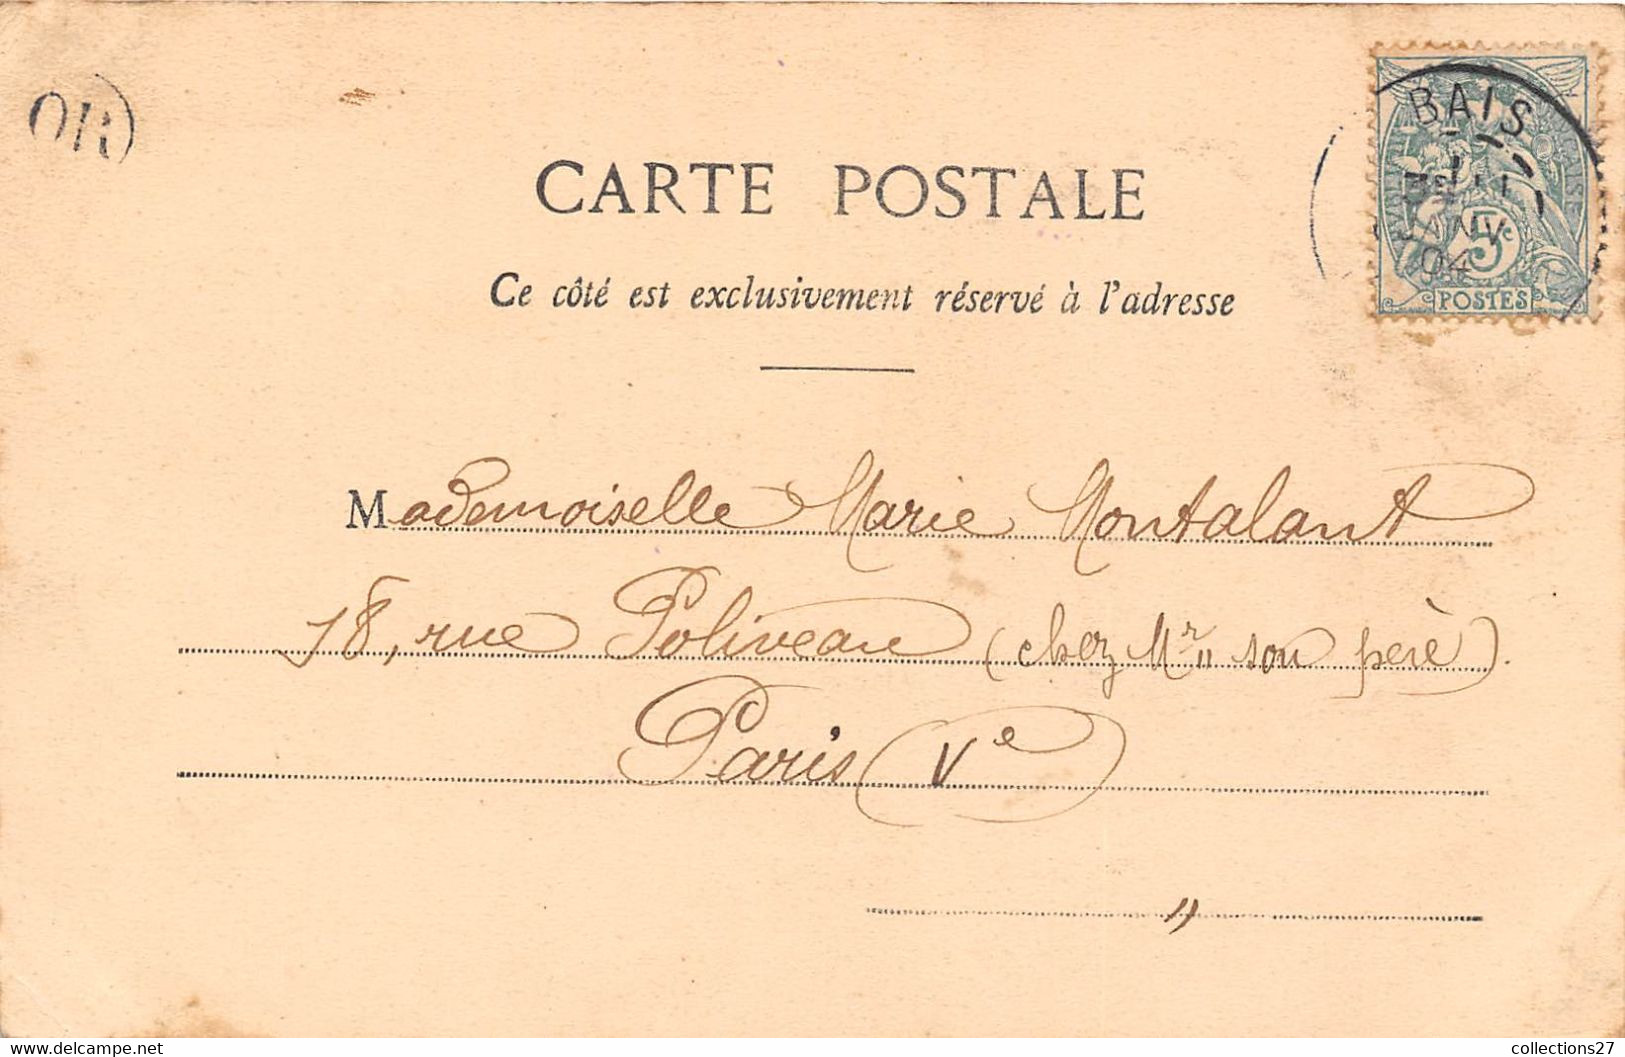 OR
CARTE POSTALE
Ce côté est exclusivement réservé à l'adresse
BAIS
JANV
04
5c
POSTES
Mademoiselle Marie Montalant
18, rue Poliveau (chez Mr " son père).
Paris (Ve)
"
www.delcampe.net
collections27